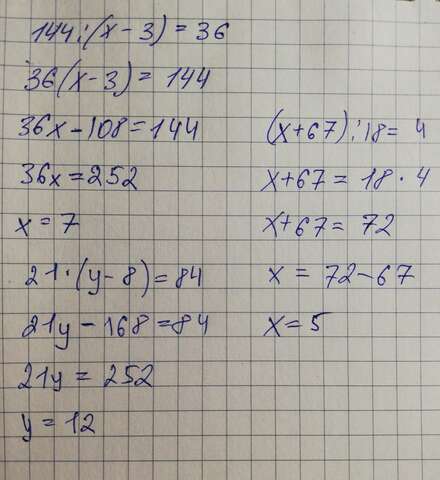 144:(x-3)=36
36(x-3)=144
36x-108=144
36x=252
x=7
21·(y-8)=84
21y-168=84
21y=252
y=12
(x+67):18=4
x+67=18·4
x+67=72
x=72-67
x=5